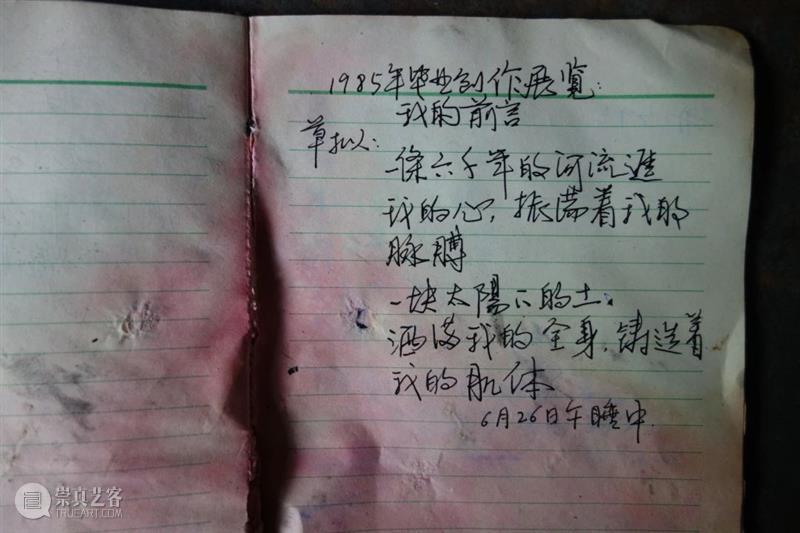 1985年毕业创作展览:
我的前言
草拟:
一条六千年的河流进
我的心，振荡着我的
脉膊
一块太陽下的土.
洒满我的全身，铸造着
我的肌体
6月26日午睡中.
崇真艺客
TRUEART.COM